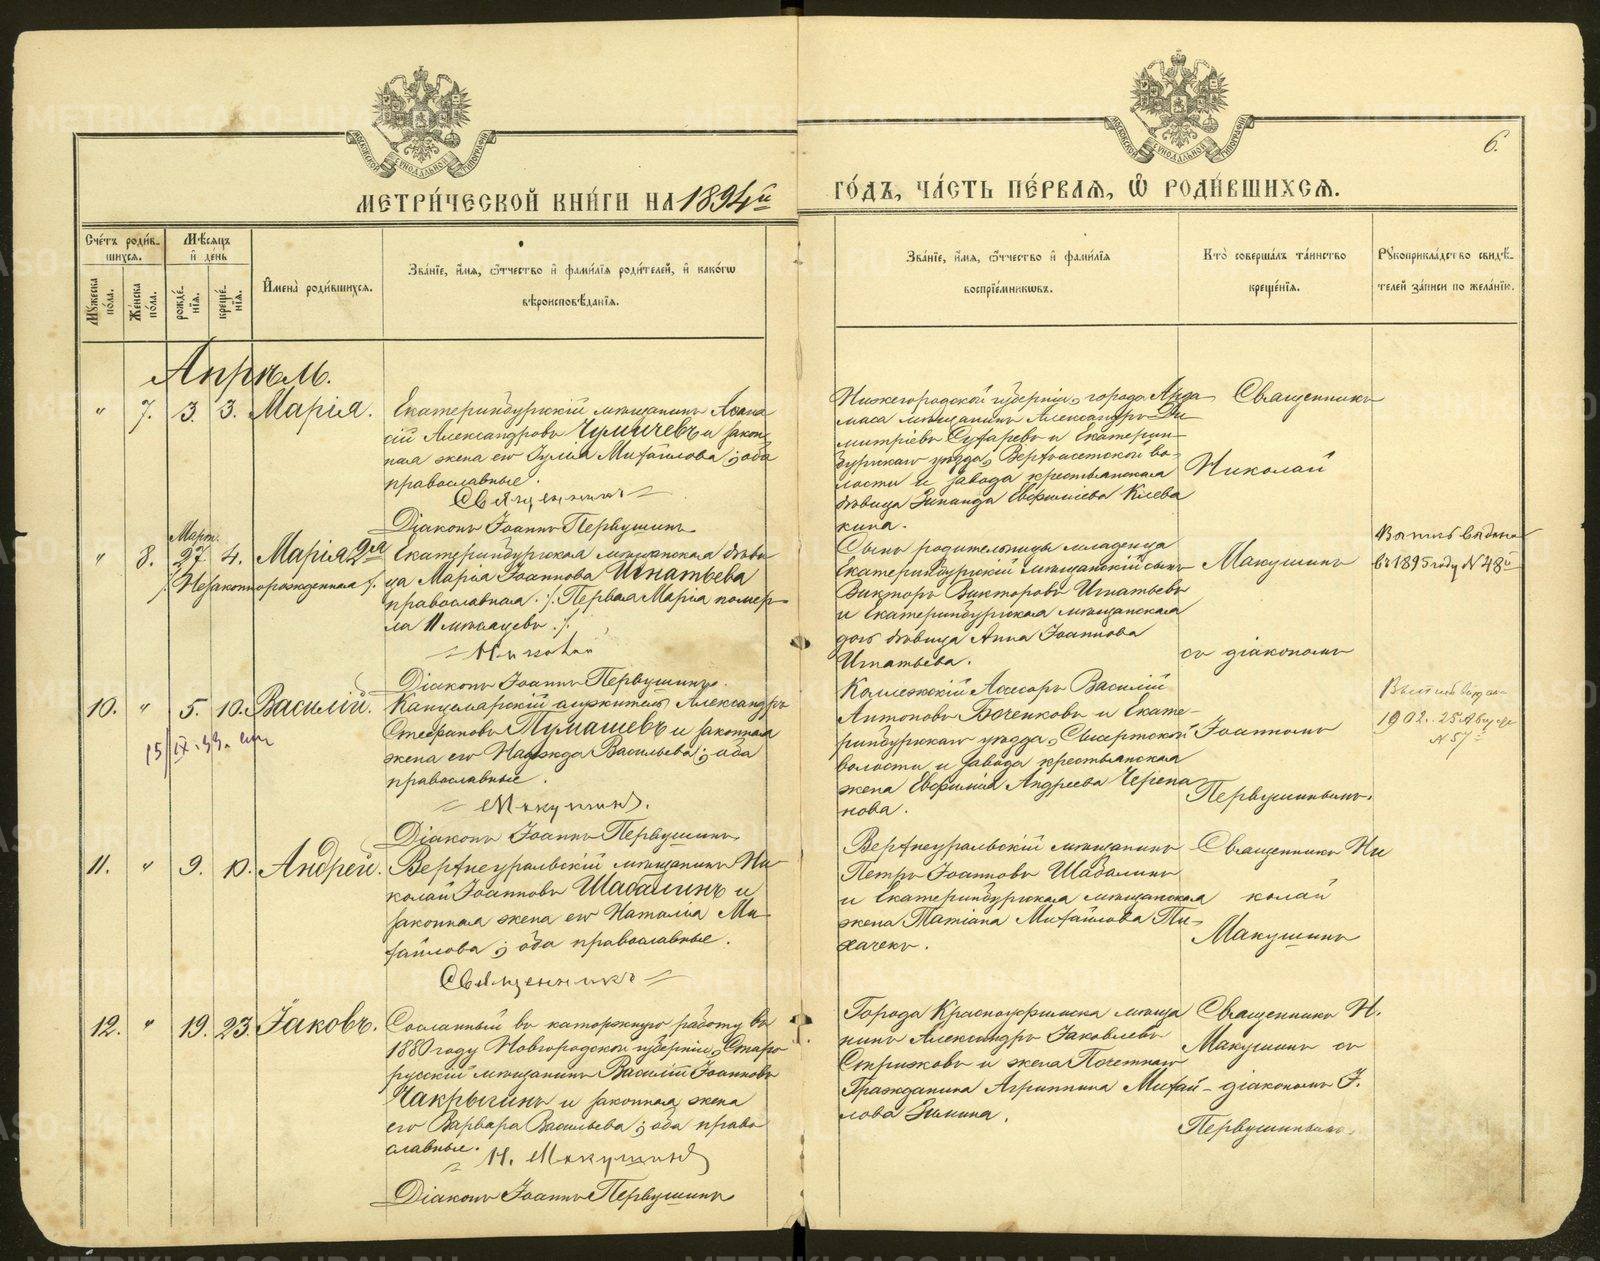 МЕТРИ́ЧЕСКОЙ КНИ́ГИ НА 1894й
ГО́ДЪ, ЧА́СТЬ ПЕ́РВАѦ, Ѡ҆ РОДИ́ВШИХСѦ.
6.
Сче́тъ роди́в-
шихсѧ.
Мѣ́сѧцъ
и҆ день
Мꙋ́жеска по́ла.
Же́нска по́ла.
рожде́-
нїѧ.
креще́-
нїѧ.
И҆мена̀ роди́вшихсѧ.
Зва́нїе, и҆́мѧ, ѻ҆́тчество и҆ фами́лїѧ роди́телей, и҆ како́гѡ
вѣроисповѣ́данїѧ.
Зва́нїе, и҆́мѧ, ѻ҆́тчество и҆ фами́лїѧ
воспрїе́мникѡвъ.
Кто̀ соверша́лъ та́инство
креще́нїѧ.
Рꙋкоприкла́дство свидѣ́-
телей за́писи по жела́нїю.
Апрѣль.
" 7. 3. 3. Марія.
Екатеринбургскій мѣщанинъ Афана
сій Александровъ Чумичевъ и закон
ная жена его Іулія Михайлова; оба
православные.
Священникъ
Діаконъ Іоаннъ Первушинъ
Нижегородской губерніи, города Арза
маса мѣщанинъ Александръ Ди
митріевъ Сухаревъ и Екатерин-
бургскаго уѣзда, Верхисетской во-
лости и завода крестьянская
дѣвица Зинаида Евфиміева Клева
кина.
Священникъ
Николай
" 8. Март. 27. 4. Марія 2ая
/. Незаконнорожденная /.
Екатеринбургская мѣщанская дѣви
ца Марія Іоаннова Игнатьева
православная. /. Первая Марія помер-
ла 11 мѣсяцевъ. /.
Николай
Діаконъ Іоаннъ Первушинъ.
Сынъ родительницы младенца
Екатеринбургскій мѣщанскій сынъ
Викторъ Викторовъ Игнатьевъ
и Екатеринбургская мѣщанская
дочь дѣвица Анна Іоаннова
Игнатьева.
Макушинъ
съ діакономъ
Выпись выдана
въ 1895 году N 48й
10. " 5. 10. Василій.
15/IX.33.
Канцелярскій служитель Александръ
Стефановъ Тумашевъ и законная
жена его Надежда Васильева; оба
православные.
Макушинъ.
Діаконъ Іоаннъ Первушинъ.
Коллежскій Ассесоръ Василій
Антоновъ Боченковъ и Екате-
ринбургскаго уѣзда, Сысертской
волости и завода крестьянская
жена Евфимія Андреева Черепа
нова.
Іоанномъ
Первушинымъ.
Выпись выдана
1902. 25 Августа
N 57
11. " 9. 10. Андрей.
Верхнеуральскій мѣщанинъ Ни-
колай Іоанновъ Шабалинъ и
законная жена его Наталія Ми-
хайлова; оба православные.
Священникъ
Верхнеуральскій мѣщанинъ
Петръ Іоанновъ Шабалинъ
и Екатеринбургская мѣщанская
жена Татіана Михайлова Ти-
хачекъ.
Священникъ Ни
колай
Макушинъ
12. " 19. 23. Іаковъ.
Сосланный въ каторжную работу въ
1880 году Новгородской губерніи, Старо
русскій мѣщанинъ Василій Іоанновъ
Чакрыгинъ и законная жена
его Варвара Васильева; оба право
славные.
Н. Макушинъ
Діаконъ Іоаннъ Первушинъ
Города Красноуфимска мѣща
нинъ Александръ Іаковлевъ
Стрижовъ и жена Почетнаго
Гражданина Агриппина Михай-
лова Зимина.
Священникъ Н.
Макушинъ съ
діакономъ І.
Первушинымъ.